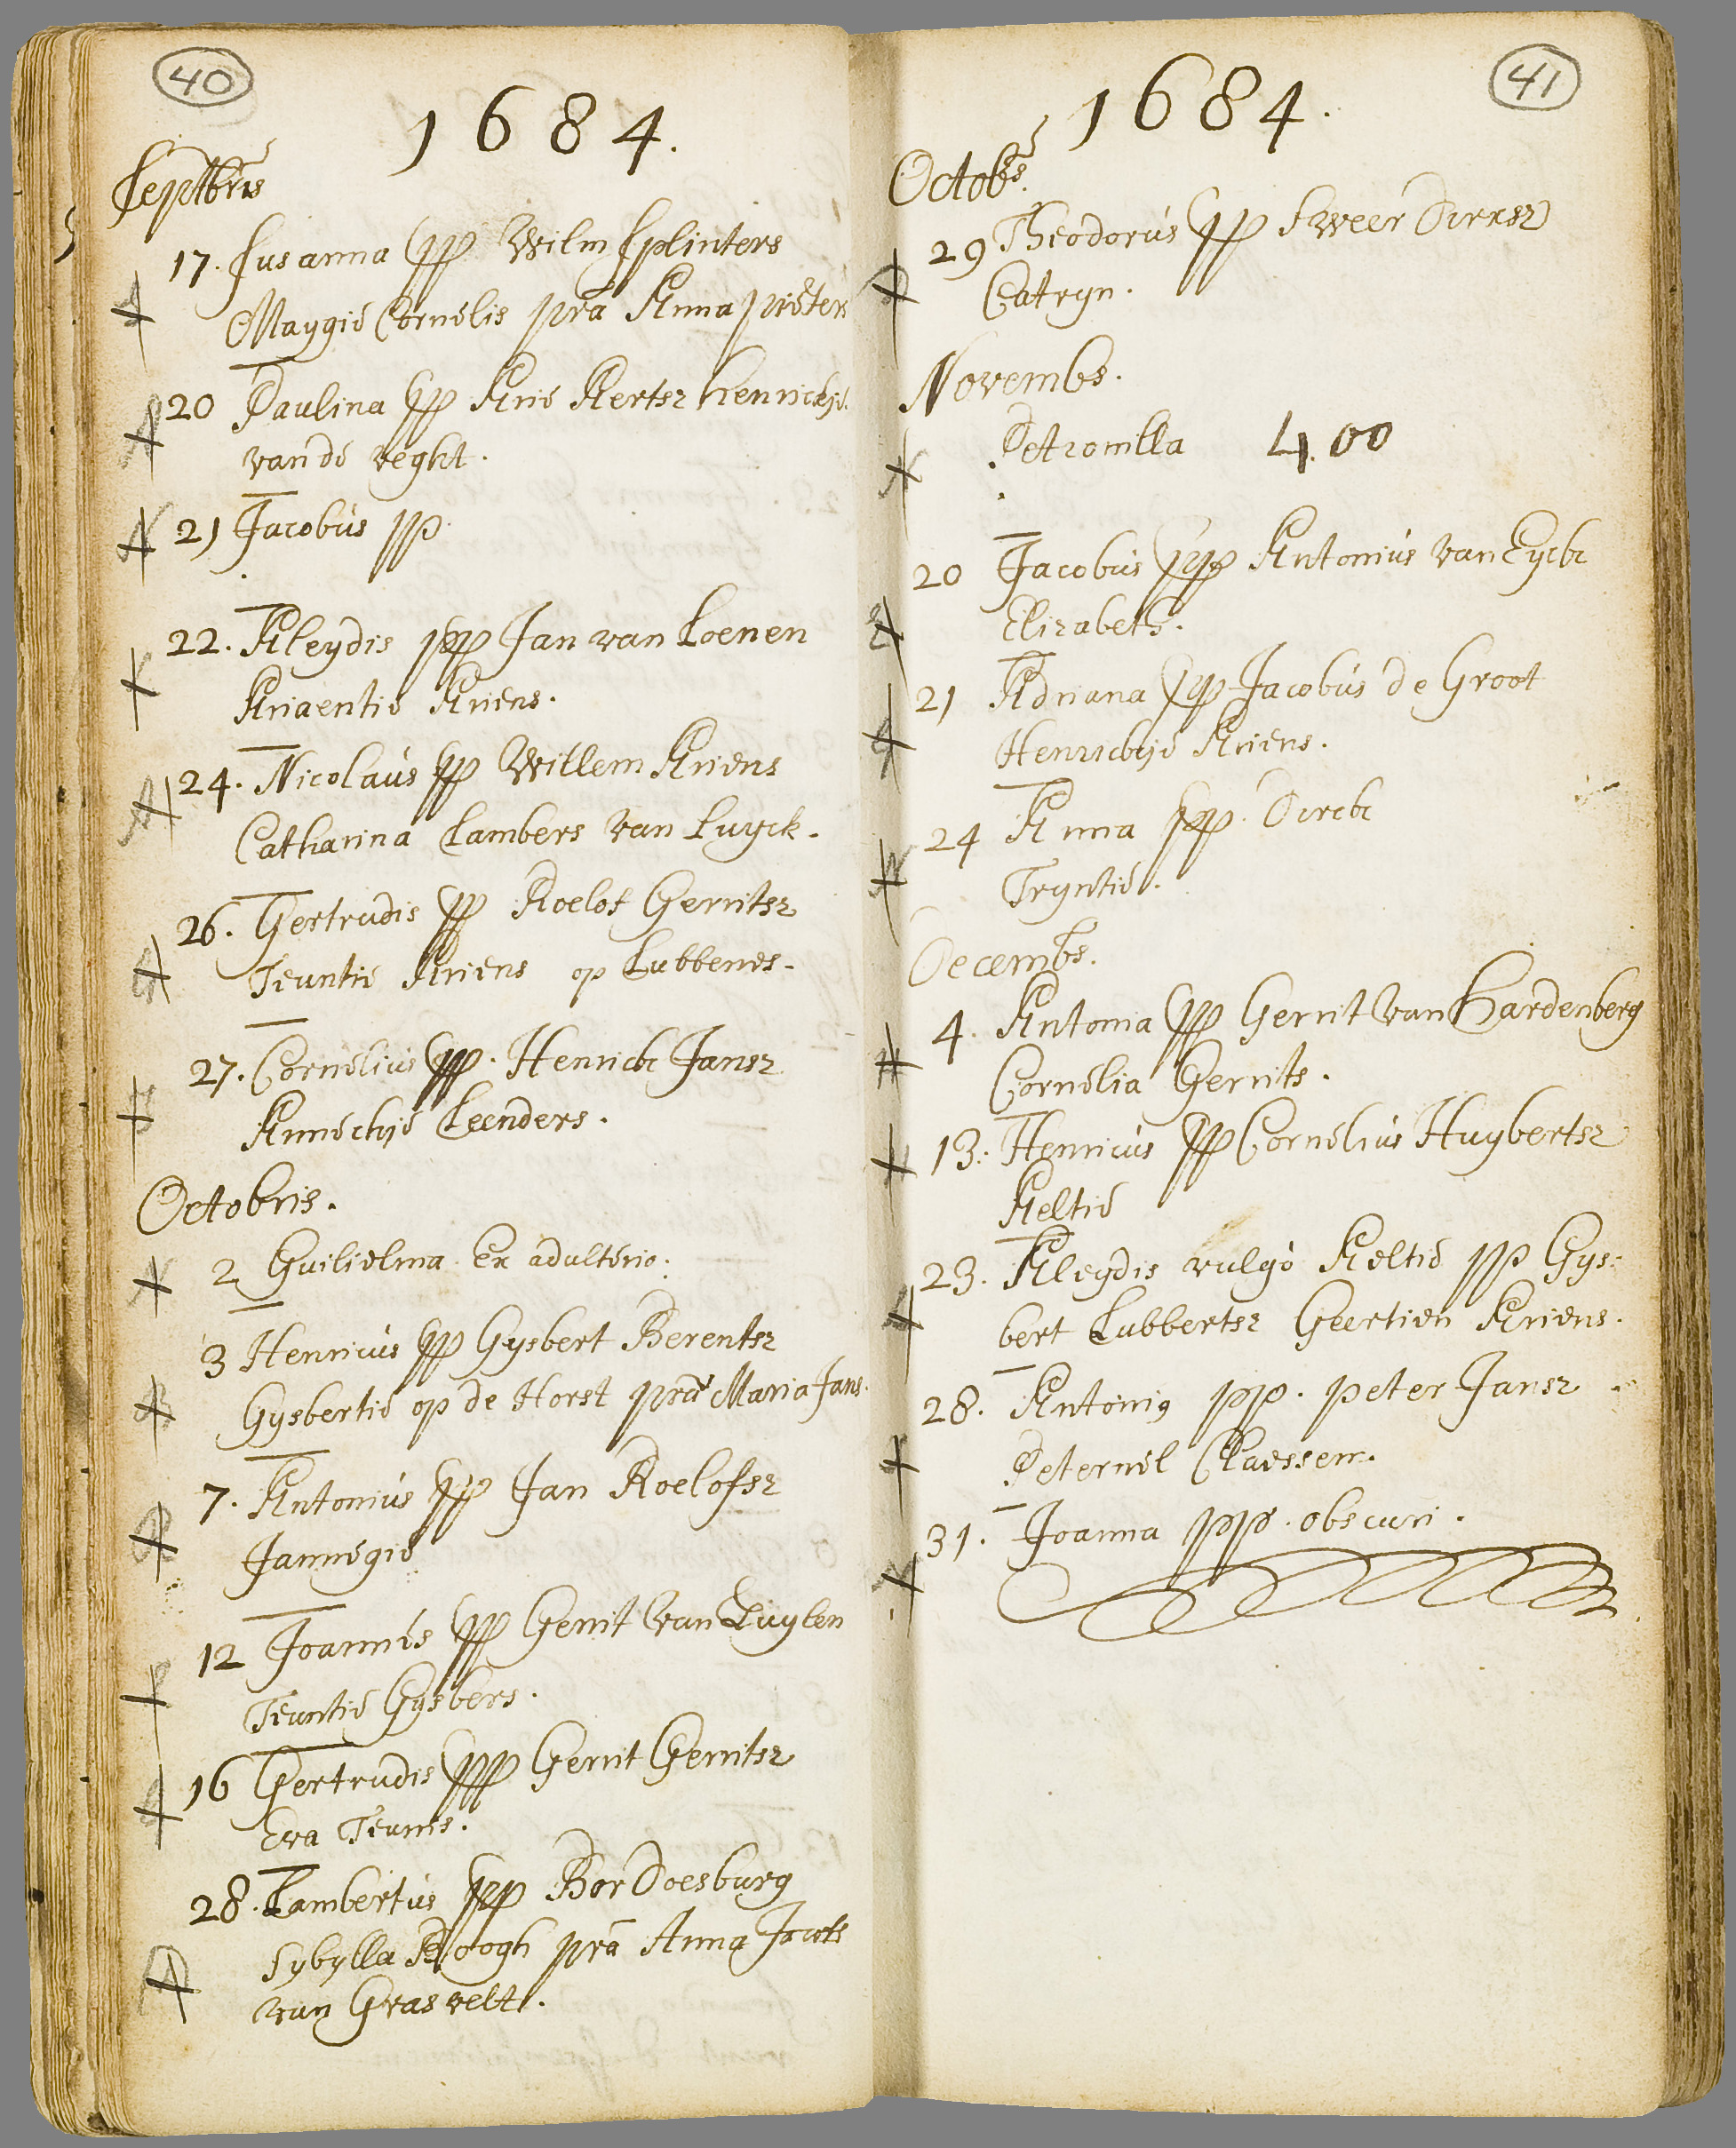 40
1684.
Septbris
17. Susanna pp Wilm Splinters
Maygie Cornelis pra Anna pieters
20 Paulina pp Arie Aertsz henrickje
van de veght.
21 Jacobus pp
22. Aleydis pp Jan van Loenen
Ariaentie Ariens.
24. Nicolaus pp Willem Ariens
Catharina Lambers van Luyck.
26. Gertrudis pp Roelof Gerritsz
Teuntie Ariens op Lubbenes.
27. Cornelius pp. Henrick Jansz
Annechje Leenders.
Octobris.
2 Guilielma Ex adulterio.
3 Henricus pp Gysbert Berentsz
Gysbertie op de Horst pra Maria Jans.
7. Antonius pp Jan Roelofsz
Jannegie
12 Joannes pp Gerrit van Luylen
Teuntie Gysbers.
16 Gertrudis pp Gerrit Gerritsz
Eva Teunis.
28. Lambertus pp Bor Doesburg
Sybylla Roogh pra Anna Jacobs
van Grasvelt.
41
1684.
Octobs.
29 Theodorus pp Sweer Dirksz
Catryn.
Novembs.
Petronilla 4.00
20 Jacobus pp Antonius van Eyck
Elizabeth.
21 Adriana pp Jacobus de Groot
Henrickje Ariens.
24 Anna pp Dirck
Tryntie.
Decembs.
4. Antonia pp Gerrit van Hardenberg
Cornelia Gerrits.
13. Henricus pp Cornelius Huybertsz
Aeltie
23. Aleydis vulgo Aeltie pp Gys:
bert Lubbertsz Geertien Ariens.
28. Antonig pp. peter Jansz
Peternel Claessen.
31. Joanna pp. obscuri.